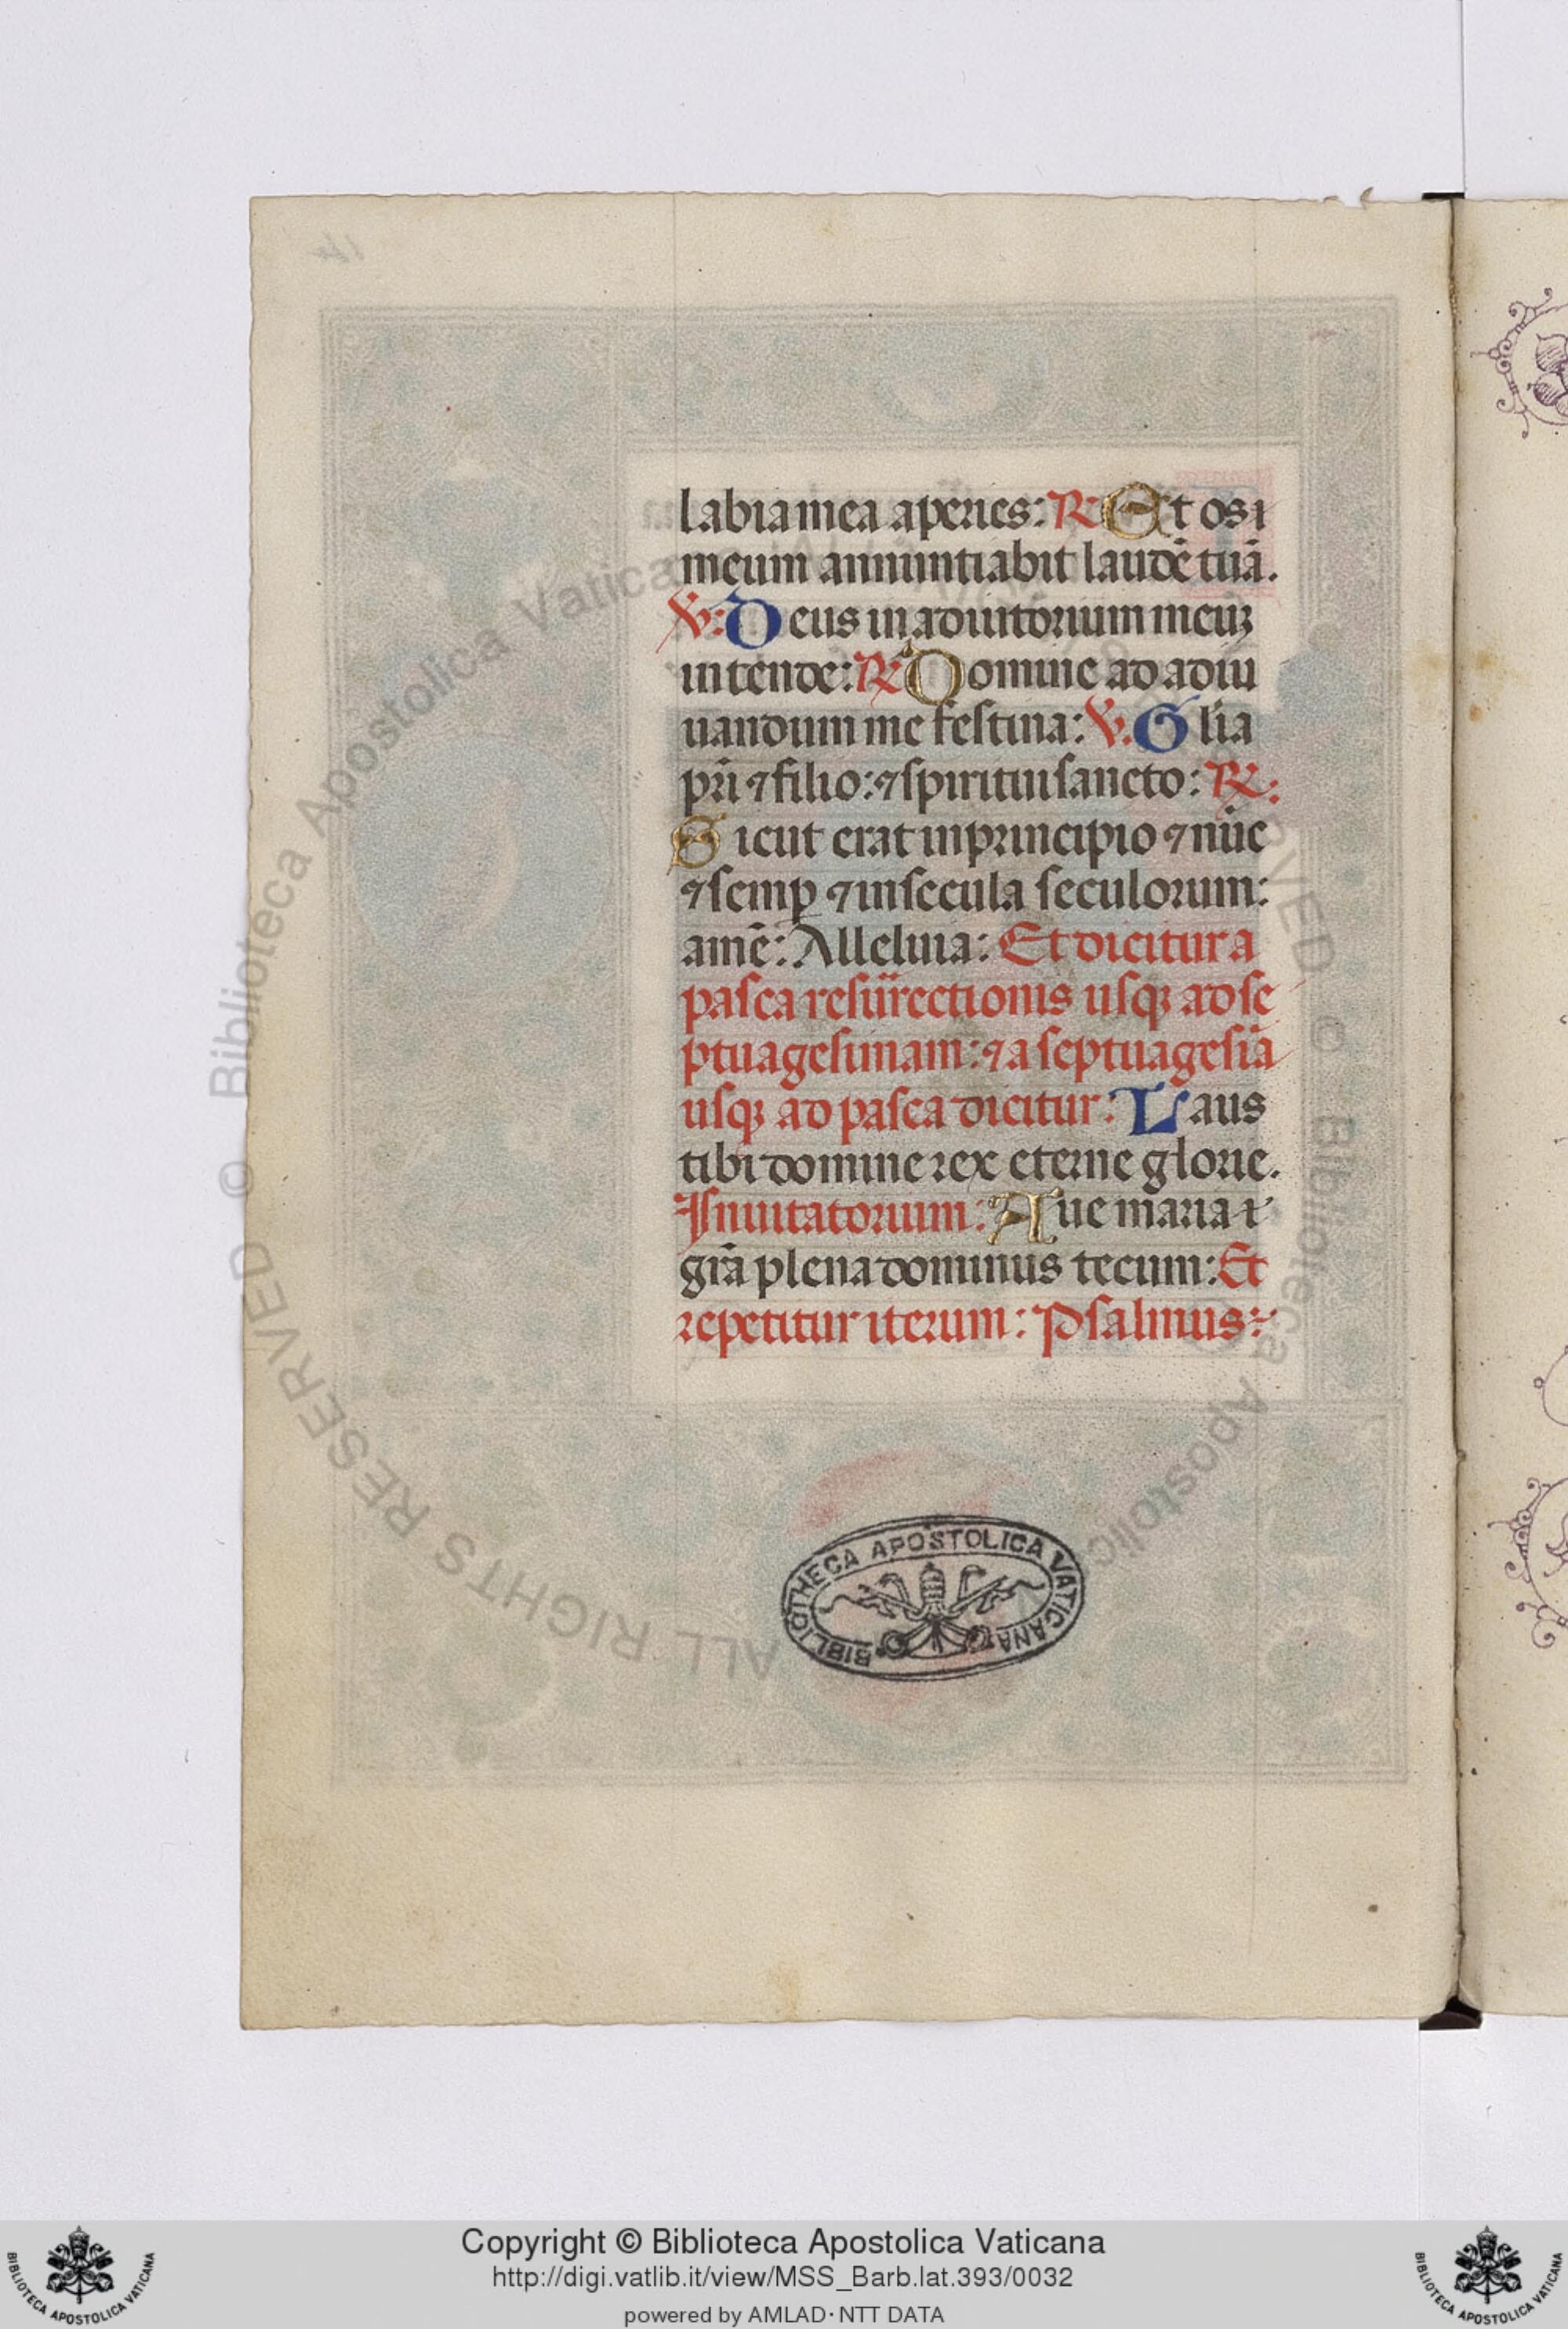 labia mea aperies: R Et os
meum annuntiabit laudē tuā.
V: Deus in adiutorium meuꝫ
intende: R Domine ad adiu
uandum me festina: V. Glīa
pr̄i ⁊ filio: ⁊ spiritui sancto: R:
Sicut erat in principio ⁊ nūc
⁊ semꝑ ⁊ in secula seculorum:
amē: Alleluia: Et dicitur a
pasca resūrectionis usqꝫ ad se
ptuagesimam: ⁊ a septuagesiā
usqꝫ ad pasca dicitur: Laus
tibi domine rex eterne glorie.
Inuitatorium: Aue maria
gr̄a plena dominus tecum: Et
repetitur iterum: Psalmus:
BIBLIOTHECA APOSTOLICA VATICANA
© Biblioteca Apostolica Vaticana
ALL RIGHTS RESERVED © Biblioteca Apostolica
Copyright © Biblioteca Apostolica Vaticana
http://digi.vatlib.it/view/MSS_Barb.lat.393/0032
powered by AMLAD·NTT DATA
BIBLIOTECA APOSTOLICA VATICANA
BIBLIOTECA APOSTOLICA VATICANA